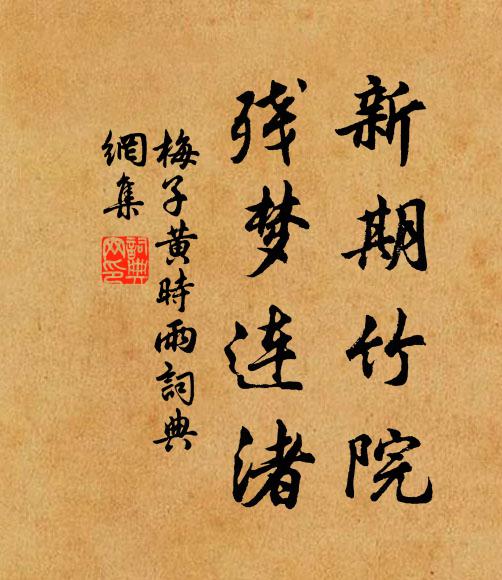 新期竹院
残梦连渚
梅子黄時雨詞典
網集
詞典
网印